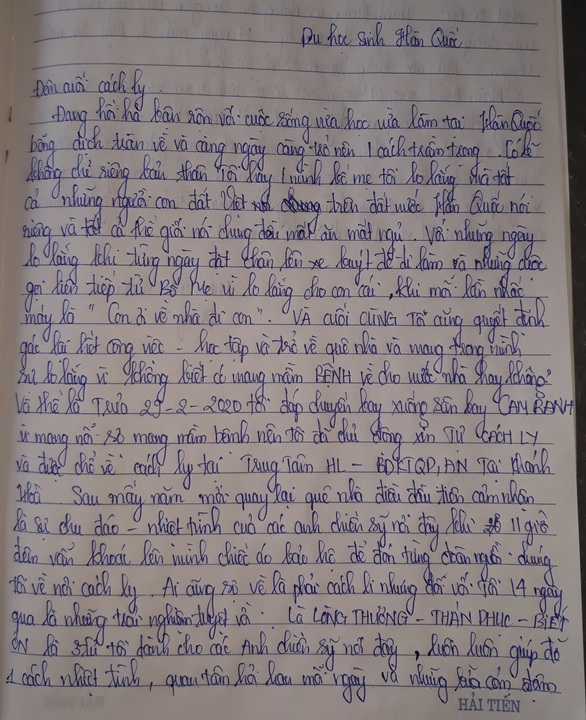 Du học sinh Hàn Quốc
Đêm cuối cách ly
Đang hối hả bận rộn với cuộc sống vừa học vừa làm tại Hàn Quốc
bỗng dịch tràn về và càng ngày càng trở nên 1 cách trầm trọng. Có lẽ
không chỉ riêng bản thân tôi hay 1 mình bố mẹ tôi lo lắng mà tất
cả những người con đất Việt trên đất nước Hàn Quốc nói
riêng và tất cả thế giới nói chung đều mất ăn mất ngủ. Với những ngày
lo lắng khi từng ngày đặt chân lên xe buýt để đi làm và những cuộc
gọi liên tiếp từ Bố Mẹ vì lo lắng cho con cái, khi mỗi lần nhấc
máy là "Con ơi về nhà đi con". VÀ CUỐI CÙNG TÔI cũng quyết định
gác lại hết công việc - học tập và trở về quê nhà và mang trong mình
sự lo lắng vì không biết có mang mầm BỆNH về cho nước nhà hay không?
Và thế là TRƯA 29-2-2020 tôi đáp chuyến bay xuống sân bay CAM RANH
vì mang nỗi sợ mang mầm bệnh nên tôi đã chủ động xin TỰ CÁCH LY
và được chở về cách ly tại Trung Tâm HL - BDKTQP, AN Tại Khánh
Hoà. Sau mấy năm mới quay lại quê nhà điều đầu tiên cảm nhận
là sự chu đáo - nhiệt tình của các anh chiến sỹ nơi đây khi 11 giờ
đêm vẫn khoác lên mình chiếc áo bảo hộ để đón từng chúng
tôi về nơi cách ly. Ai cũng sợ về là phải cách li nhưng đối với tôi 14 ngày
qua là những trải nghiệm tuyệt vời. Là LÒNG THƯƠNG - THÁN PHỤC - BIẾT
ƠN là thứ tôi dành cho các Anh chiến sỹ nơi đây, luôn luôn giúp đỡ
1 cách nhiệt tình, quan tâm hỏi han mỗi ngày và những bữa cơm đạm
HẢI TIẾN